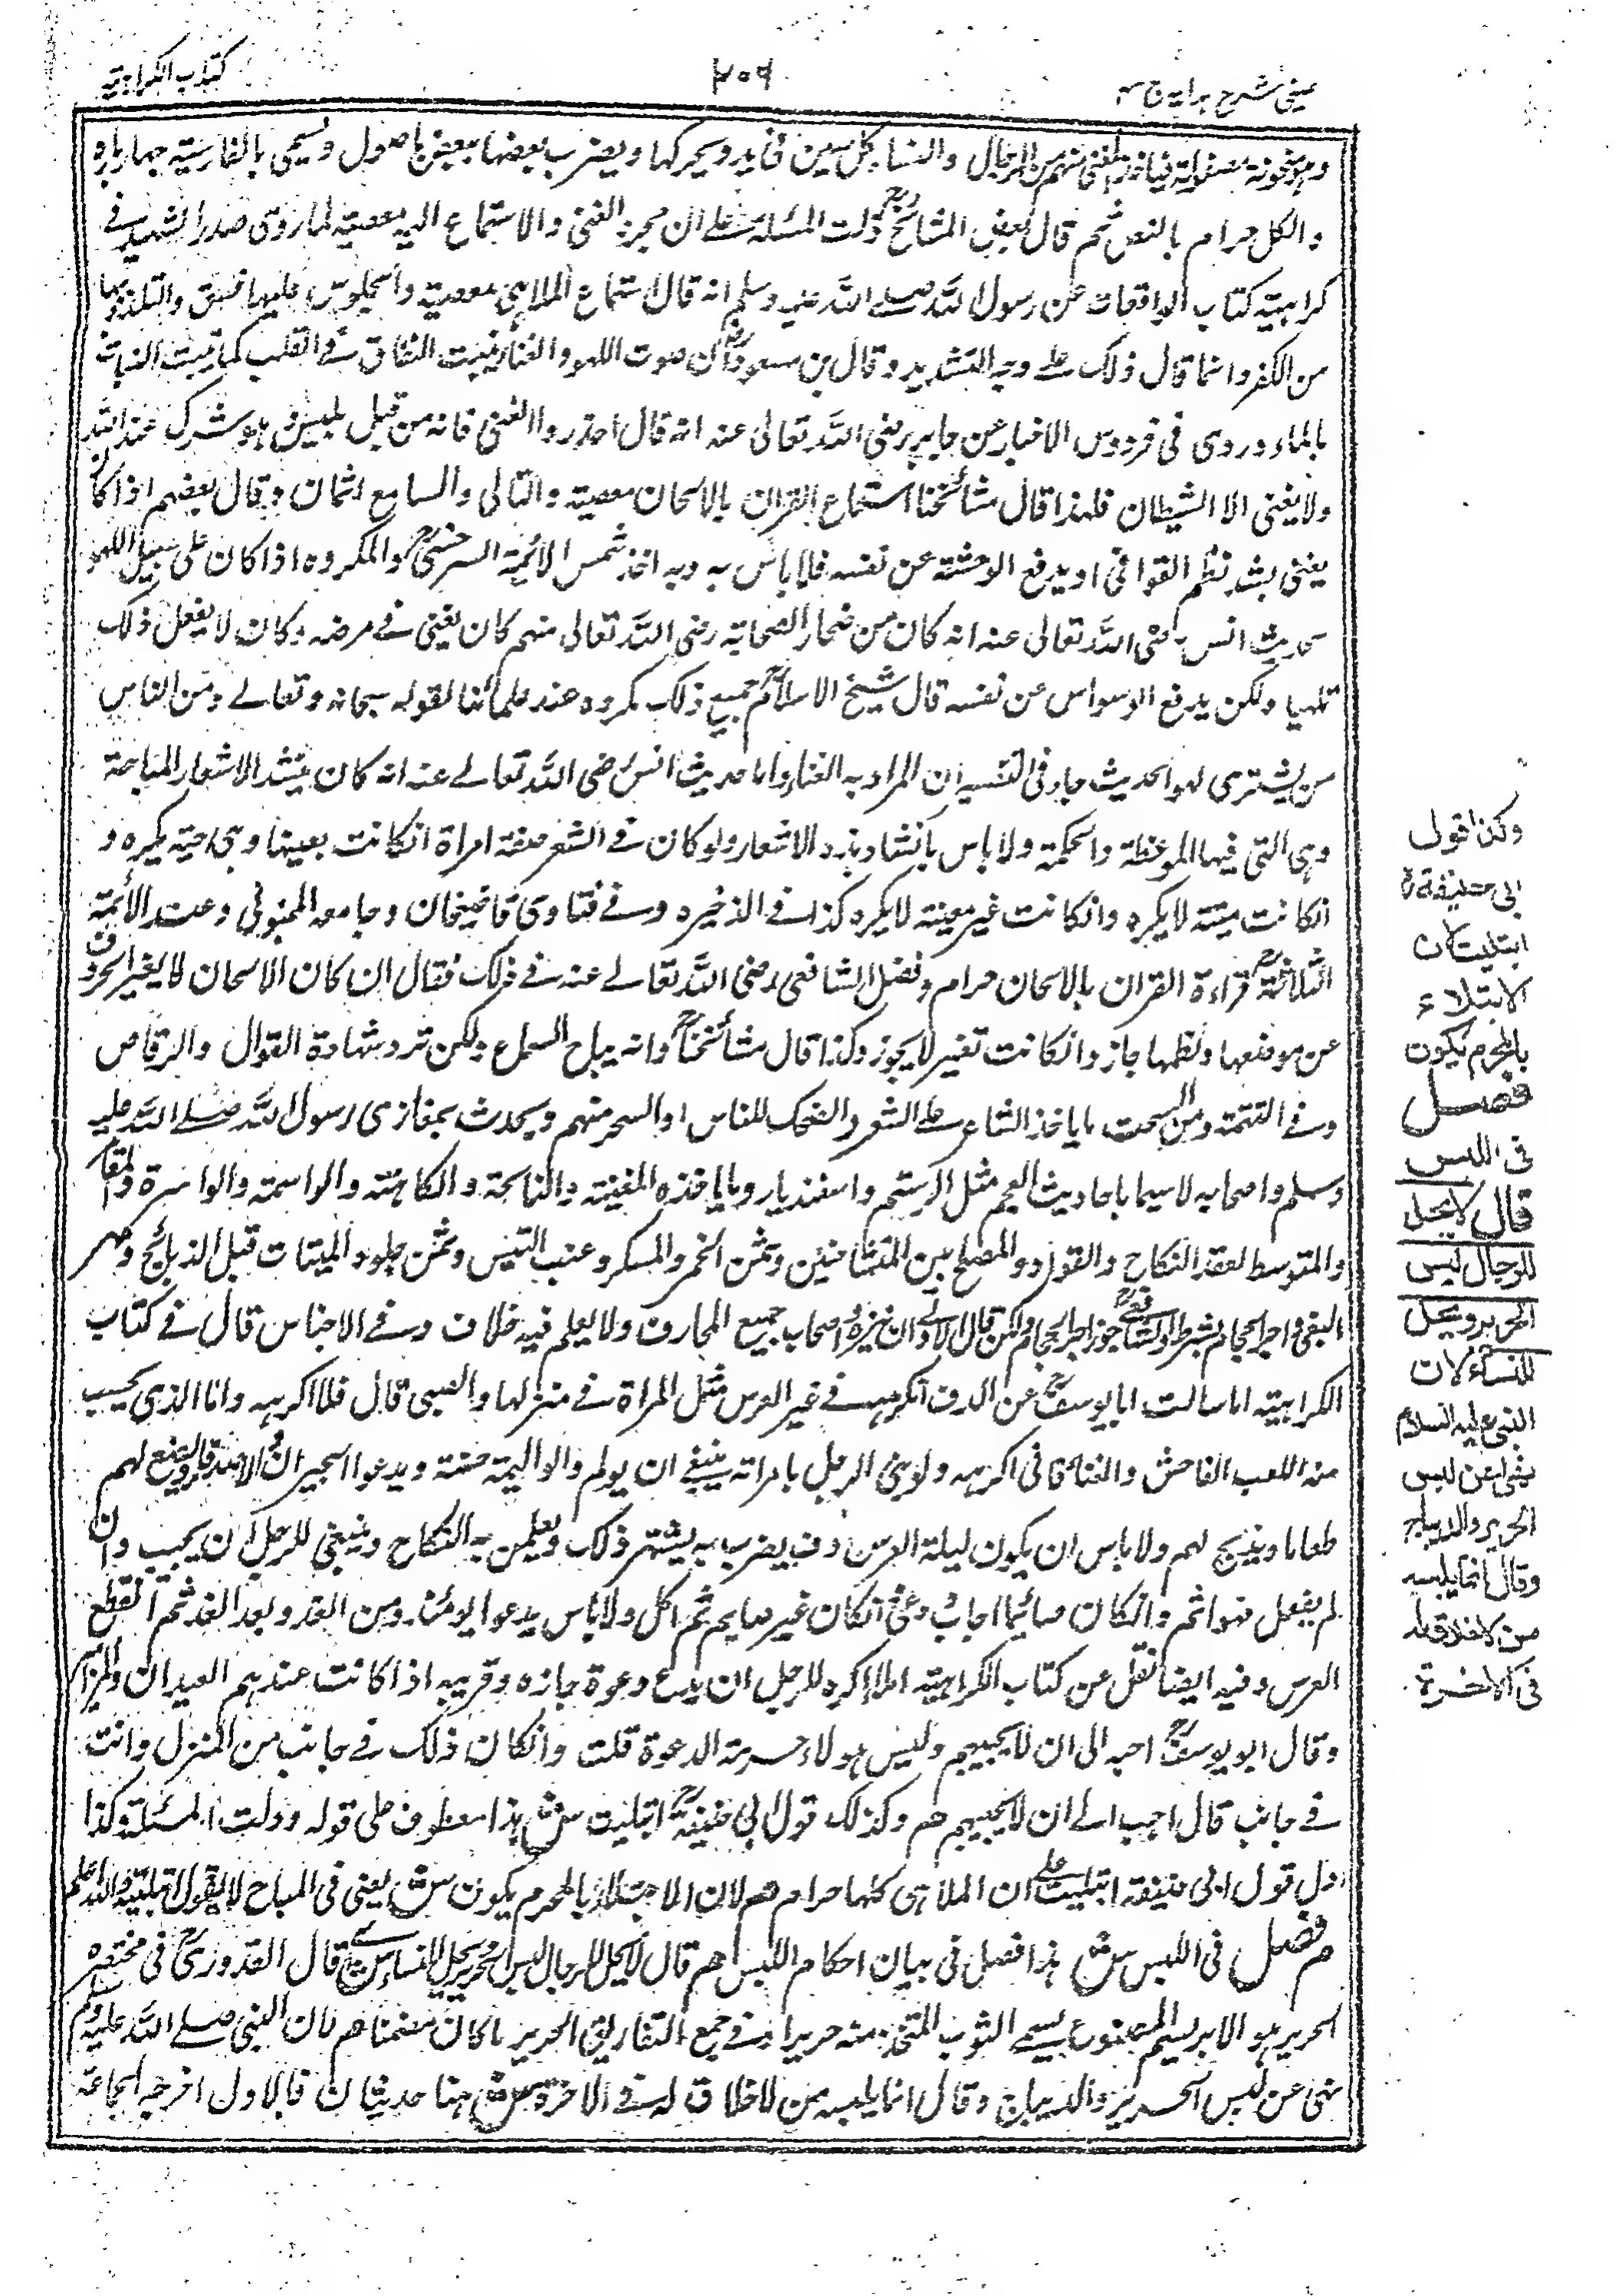 عينى شرح هدايه ج ٤
٢٠٩
كتاب الكراهية
والنساء كل سين في يد ويحركها ويضرب بعضها ببعض باصول ويسمى بالفارسية چهارپاره
والكل حرام بالنص ثم قال بعض المشائخ رح دلت المسئلة على ان مجرد الغنى والاستماع اليه معصية لما روى صدر الشهيد في
كراهية كتاب الواقعات عن رسول الله صلى الله عليه وسلم انه قال استماع الملاهى معصية والجلوس عليها فسق والتلذذ بها
من الكفر وانما قال ذلك على وجه التشديد وقال بن مسعود رض ان صوت اللهو والغناء ينبت النفاق في القلب كما ينبت النبات
بالماء وروى فى فردوس الاخبار عن جابر رضى الله تعالى عنه انه قال احذروا الغنى فانه من قبل ابليس هو شرك عند الله
ولا يغنى الا الشيطان فلهذا قال مشائخنا استماع القران بالالحان معصية والتالى والسامع اثمان وقال بعضهم اذا كان
يغنى نظم القوافى او يدفع الوحشة عن نفسه فلا باس به وبه اخذ شمس الائمة السرخسى رح والمكروه اذا كان على سبيل اللهو
لحديث انس رضى الله تعالى عنه انه كان من الصحابة رضى الله تعالى عنهم كان يغنى في مرضه وكان لا يفعل ذلك
تلهيا ولكن يدفع الوسواس عن نفسه قال شيخ الاسلام رح جميع ذلك مكروه عند علمائنا لقوله سبحانه وتعالى ومن الناس
من يشترى لهو الحديث جاء فى التفسير ان المراد به الغناء واما حديث انس رضى الله تعالى عنه انه كان ينشد الاشعار المباحة
وهى التى فيها الموعظة والحكمة ولا باس بانشاد هذه الاشعار ولو كان في الشعر صفة امراة انكانت بعينها وهى حية يكره و
انكانت ميتة لا يكره وانكانت غير معينة لا يكره كذا في الذخيره وفي فتاوى قاضيخان وجامعه المحبوبى وعند الائمة
الثلاثة رح قراءة القران بالالحان حرام وفصل الشافعى رضى الله تعالى عنه في ذلك فقال ان كان الالحان لا يغير الحروف
عن موضعها ونظمها جاز وانكانت تغير لا يجوز وكذا قال مشائخنا رح وانه يباح السماع ولكن ترد شهادة القوال والرقاص
وفي التتمة ومن السحت ما ياخذ الشاعر على الشعر والضحك للناس او السحر منهم ويحدث بمغازى رسول الله صلى الله عليه
وسلم واصحابه لا سيما باحاديث العجم مثل الرستم واسفنديار وما ياخذه المغنية والنائحة والكاهنة والواسمة والواشرة
والمتوسط لعقد النكاح والمصلح بين المتشاحنين وثمن الخمر والمسكر وعسب التيس وثمن جلود الميتات قبل الدبائغ ومهر
البغى واجر الحجام بشرط اصحاب جميع المعازف ولا يعلم فيه خلاف وفي الاجناس قال في كتاب
الكراهية اما سالت ابا يوسف رح عن الدف اتكرهه في غير العرس مثل المراة في منزلها والصبى قال فلا اكرهه واما الذى يجئ
منه اللعب الفاحش والغناء فانى اكرهه ولو بنى الرجل بامراته ينبغى ان يولم والوليمة حسنة ويدعوا الجيران ويصنع لهم
طعاما ويذبح لهم ولا باس ان يكون ليلة العرس دف يضرب به يشتهر ذلك ويعلن به النكاح وينبغى للرجل ان يجيب وان
لم يفعل فهو اثم وانكان صائما اجاب ودعى وانكان غير صايم ثم اكل ولا باس يدعوا يومئذ ومن الغد وبعد الغد ثم انقطع
العرس وفيه ايضا نقل عن كتاب الكراهية املاء اكره للرجل ان يدع دعوة جاره وقريبه اذا كانت عندهم العيدان والمزامير
وقال ابو يوسف رح احبه الى ان لا يجيبهم وليس هولاء حرمة الدعوة قلت وانكان ذلك في جانب من المنزل وانت
في جانب قال احب الى ان لا يجيبهم هم وكذلك قول ابى حنيفة رح ابتليت ش هذا معطوف على قوله ودلت المسئلة وكذا
دل قول ابى حنيفة ابتليت على ان الملاهى كلها حرام هم لان الابتلاء بالمحرم يكون ش يعنى فى المباح لا يقول ابتليت والله اعلم
هم فصل فى اللبس ش هذا فصل فى بيان احكام اللبس هم قال لا يحل للرجال لبس الحرير ويحل للنساء ش اى قال القدورى رح فى مختصره
الحرير هو الابريسم المصنوع يسمى الثوب المتخذ منه حريرا وفي جمع التفاريق الحرير ما كان مصمتا هم لان النبى صلى الله عليه وسلم
نهى عن لبس الحرير والديباج وقال انما يلبسه من لا خلاق له في الاخرة ش هنا حديثان فالاول اخرجه الجماعة
وكذا قول
ابى حنيفة رح
ابتليت لان
الابتلاء
بالمحرم يكون
فصل
فى اللبس
قال لا يحل
للرجال لبس
الحرير ويحل
للنساء لان
النبى عليه السلام
نهى عن لبس
الحرير والديباج
وقال انما يلبسه
من لا خلاق له
فى الاخرة